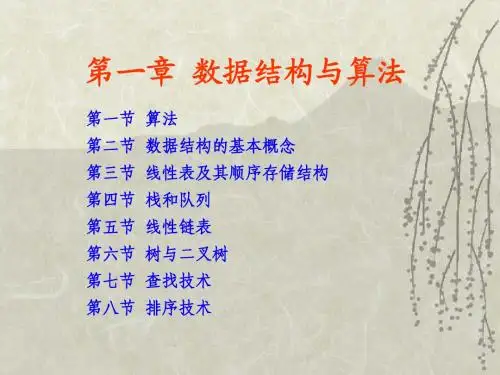 第一章 数据结构与算法
第一节 算法
第二节 数据结构的基本概念
第三节 线性表及其顺序存储结构
第四节 栈和队列
第五节 线性链表
第六节 树与二叉树
第七节 查找技术
第八节 排序技术